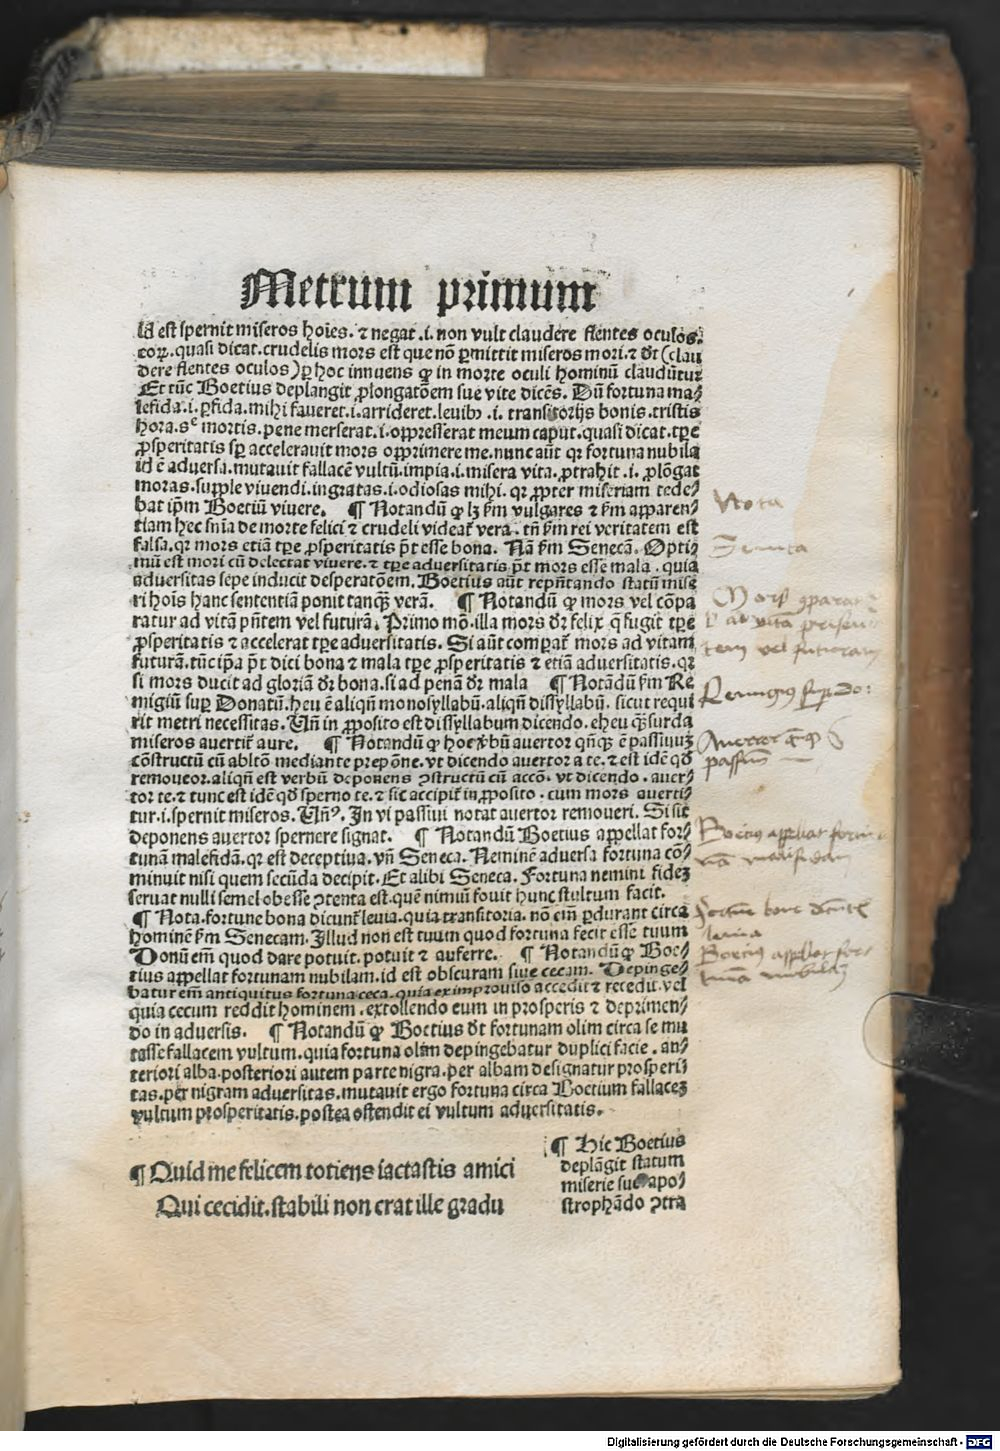 Metrum primum
id est spernit miseros hoīes. ⁊ negat .i. non vult claudere flentes oculos.
eoꝝ. quasi dicat. crudelis mors est que nō ꝑmittit miseros mori. ⁊ dt̄ (clau
dere flentes oculos) ꝑ hoc innuens ꝙ in morte oculi hominū claudūtur
Et tūc Boetius deplangit ꝓlongatōem sue vite dicēs. Dū fortuna ma⸗
lefida .i. ꝑfida. mihi faueret .i. arrideret. leuibꝰ .i. transitorijs bonis. tristis
hora. sꝫ mortis. pene merserat .i. oppresserat meum caput. quasi dicat. tꝑe
ꝓsperitatis sꝑ accelerauit mors opprimere me. nunc aūt qꝛ fortuna nubila
id ē aduersa. mutauit fallacē vultū. impia .i. misera vita. ꝓtrahit .i. ꝓlōgat
moras. supple viuendi. ingratas .i. odiosas mihi. qꝛ ꝓpter miseriam tede⸗
bat ip̄m Boetiū viuere. ¶ Notandū ꝙ lꝫ ẜm vulgares ⁊ ẜm apparen⸗
tiam hec sn̄ia de morte felici ⁊ crudeli videat̄ vera. tn̄ ẜm rei veritatem est
falsa. qꝛ mors etiā tꝑe ꝓsperitatis pt̄ esse bona. Nā ẜm Senecā. Opti⸗
mū est mori cū delectat viuere. ⁊ tꝑe aduersitatis pt̄ mors esse mala. quia
aduersitas sepe inducit desperatōem. Boetius aūt repn̄tando statū mise
ri hoīs hanc sententiā ponit tanꝙ̄ verā. ¶ Notandū ꝙ mors vel cōpa
ratur ad vitā pn̄tem vel futurā. Primo mō. illa mors dr̄ felix q̄ fugit tꝑe
ꝓsperitatis ⁊ accelerat tꝑe aduersitatis. Si aūt comparat̄ mors ad vitam
futurā. tūc ip̄a pt̄ dici bona ⁊ mala tꝑe ꝓsperitatis ⁊ etiā aduersitatis. qꝛ
si mors ducit ad gloriā dr̄ bona. si ad penā dr̄ mala ¶ Notādū ẜm Re
migiū suꝑ Donatū. heu ē aliqn̄ monosyllabū. aliqn̄ dissyllabū. sicut requi
rit metri necessitas. Vn̄ in ꝓposito est dissyllabum dicendo. eheu ꝙ̄ surda
miseros auertit̄ aure. ¶ Notandū ꝙ hoc v̄bū auertor qn̄ꝙ ē passiuuꝫ
cōstructū cū ablatō mediante prepōne. vt dicendo auertor a te. ⁊ est idē qd̄
remoueor. aliqn̄ est verbū deponens ꝯstructū cū accō. vt dicendo. auer⸗
tor te. ⁊ tunc est idē qd̄ sperno te. ⁊ sic accipit̄ in ꝓposito. cum mors auerti⸗
tur .i. spernit miseros. Vn̄ꝰ. In vi passiui notat auertor remoueri. Si sit
deponens auertor spernere signat. ¶ Notandū Boetius appellat for⸗
tunā malefidā. qꝛ est deceptiua. vn̄ Seneca. Neminē aduersa fortuna cō⸗
minuit nisi quem secūda decipit. Et alibi Seneca. Fortuna nemini fideꝫ
seruat nulli semel obesse ꝯtenta est. quē nimiū fouit hunc stultum facit.
¶ Nota. fortune bona dicunt̄ leuia. quia transitoria. nō em̄ ꝑdurant circa
hominē ẜm Senecam. Illud non est tuum quod fortuna fecit esse tuum
Donū em̄ quod dare potuit. potuit ⁊ auferre. ¶ Notandū ꝙ Boe⸗
tius appellat fortunam nubilam. id est obscuram siue cecam. Depinge⸗
batur em̄ antiquitus fortuna ceca. quia ex improuiso accedit ⁊ recedit. vel
quia cecum reddit hominem. extollendo eum in prosperis ⁊ deprimen⸗
do in aduersis. ¶ Notandū ꝙ Boetius dt̄ fortunam olim circa se mu
tasse fallacem vultum. quia fortuna olim depingebatur duplici facie. an⸗
teriori alba. posteriori autem parte nigra. per albam designatur prosperi⸗
tas. per nigram aduersitas. mutauit ergo fortuna circa Boetium fallaceꝫ
vultum prosperitatis. postea ostendit ei vultum aduersitatis.
¶ Quid me felicem totiens iactastis amici
Qui cecidit. stabili non erat ille gradu
¶ Hic Boetius
deplāgit statum
miserie sue apo⸗
strophādo ꝯtra
Nota
Seneca
Mors ꝯparat
ad vitā presen
tem vel futuram
Remigius sup do:
Auertor
passiuū
Boecius appellat fortu
nā malefidam
Fortune bona dicunt̄
leuia
Boecius appellat for
tunā nubilā
Digitalisierung gefördert durch die Deutsche Forschungsgemeinschaft - DFG